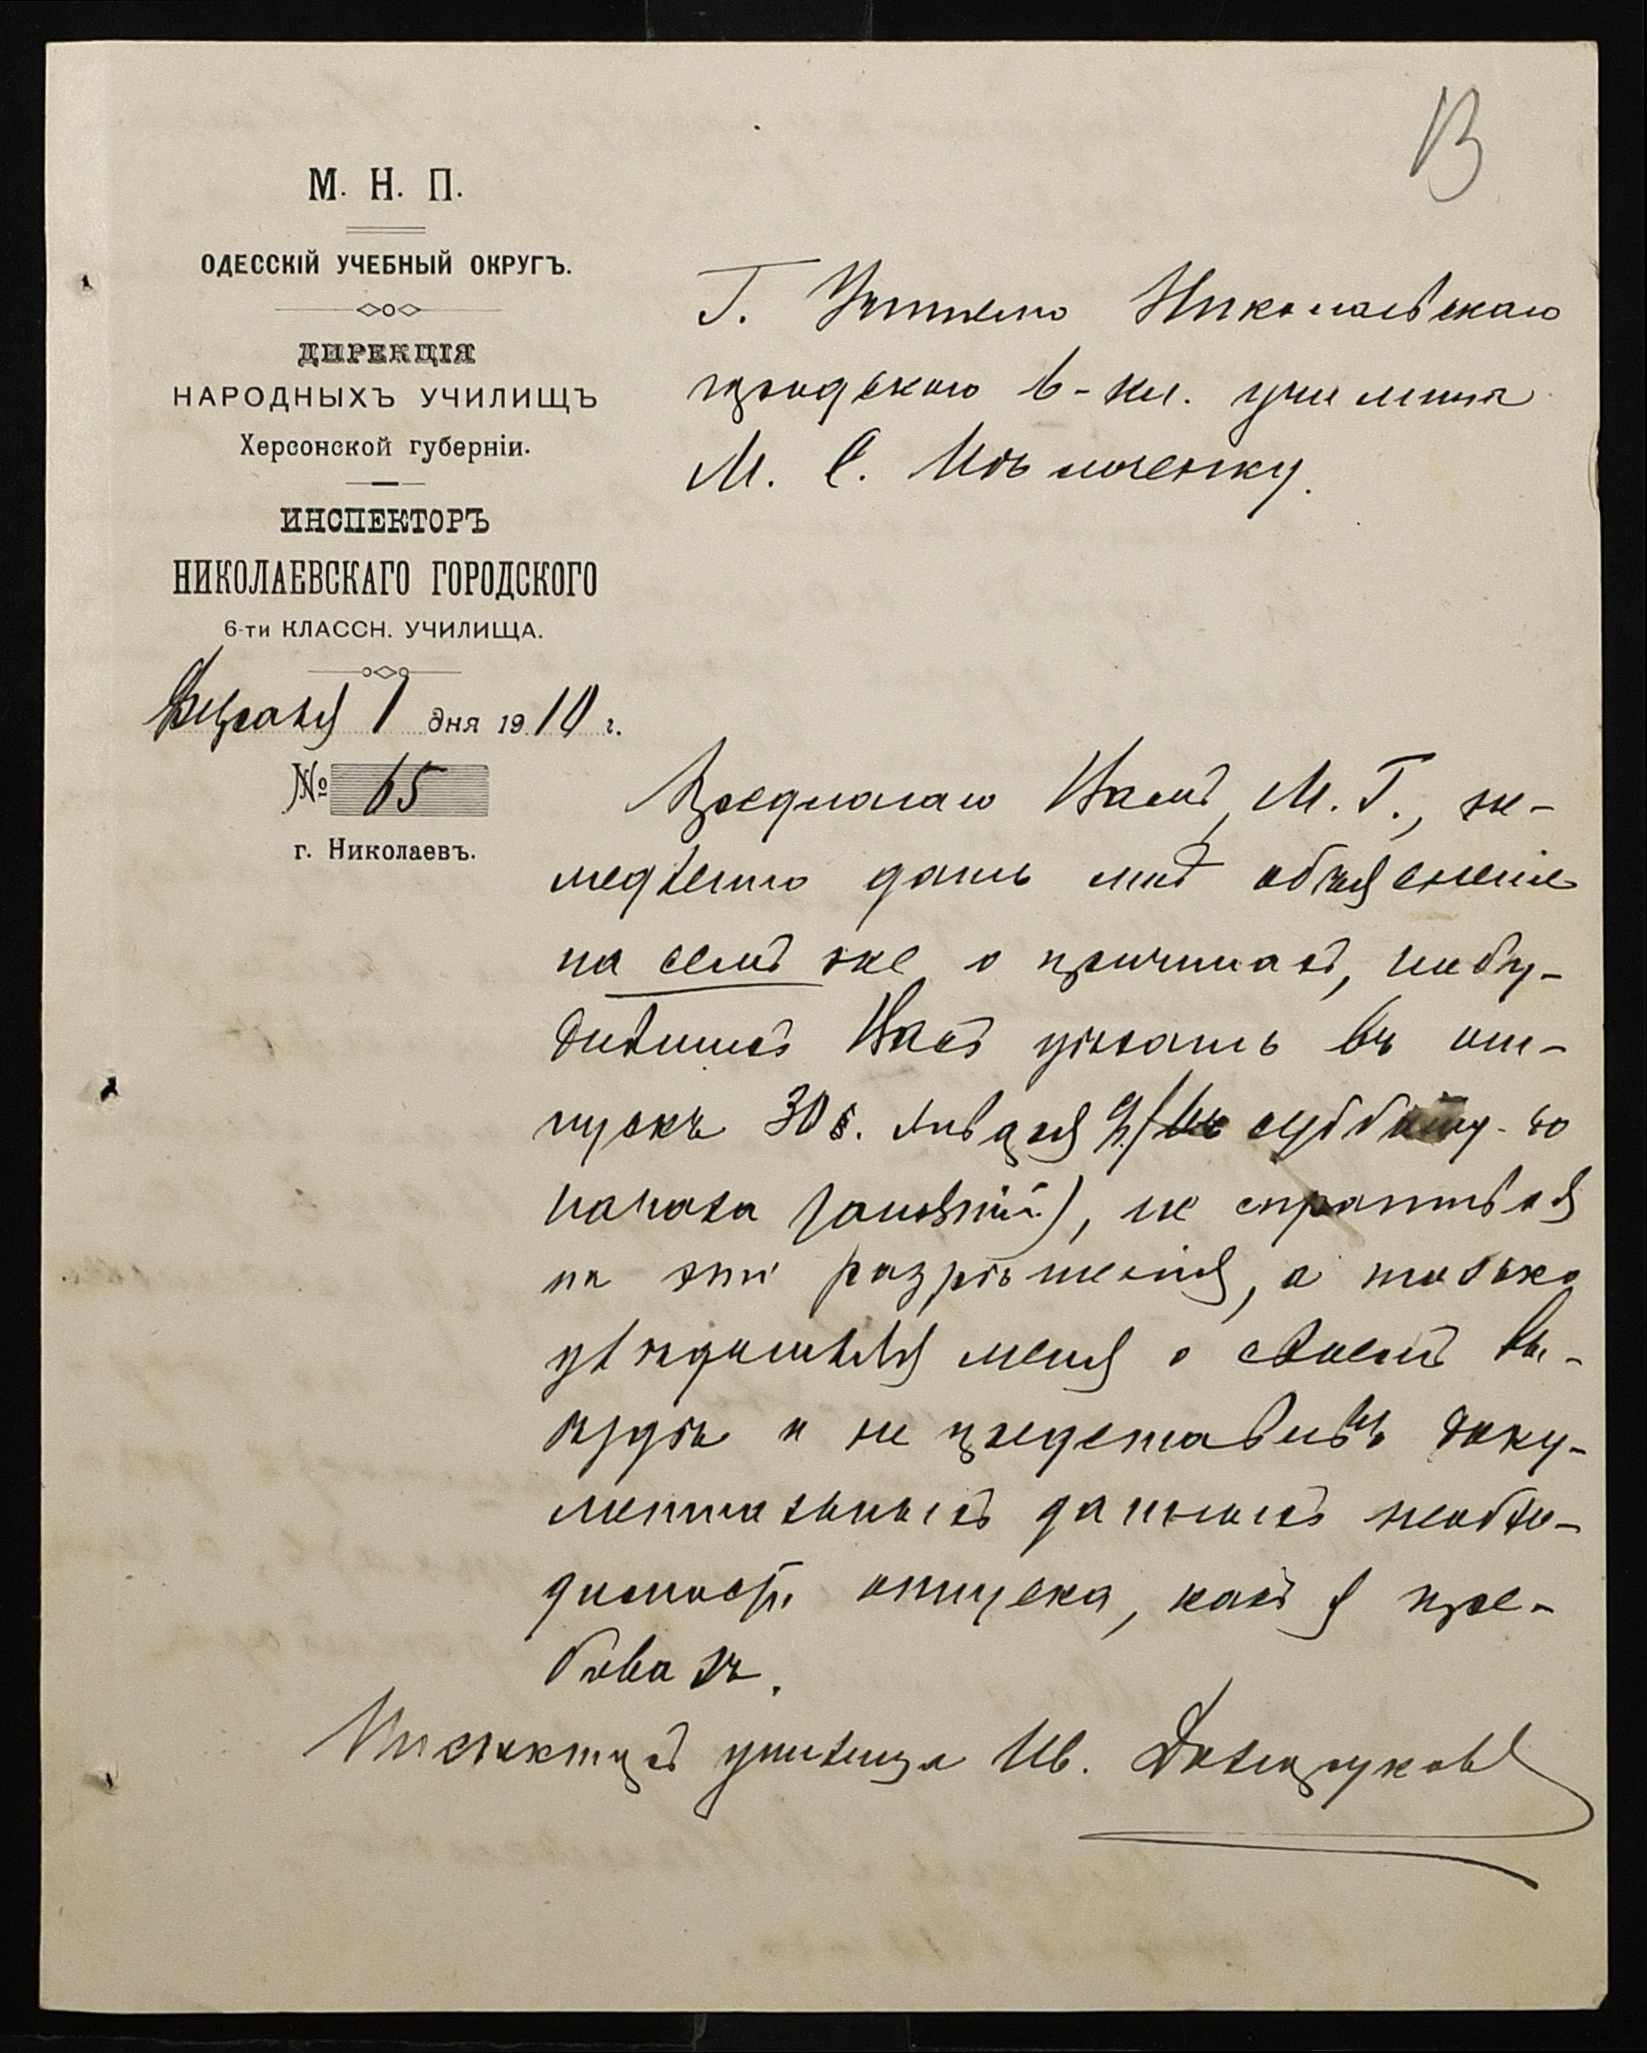 13
М. Н. П.
ОДЕССКІЙ УЧЕБНЫЙ ОКРУГЪ.
ДИРЕКЦІЯ
НАРОДНЫХЪ УЧИЛИЩЪ
Херсонской губерніи.
ИНСПЕКТОРЪ
НИКОЛАЕВСКАГО ГОРОДСКОГО
6-ти КЛАССН. УЧИЛИЩА.
Февраля 1 дня 1910 г.
№ 65
г. Николаевъ.
Г. Учителю Николаевскаго
городского 6-кл. училища
М. С.
Предлагаю Вамъ, М. Г., не-
медленно дать мнѣ объясненіе
на семъ же о причинахъ, побу-
дившихъ Васъ уѣхать въ от-
пускъ 30 с. января субботу до
начала занятій), не спросивъ
на это разрѣшенія, а только
увѣдомивъ меня о своемъ вы-
ѣздѣ и не представивъ доку-
ментальныхъ данныхъ необхо-
димости отпуска, какъ я тре-
бовалъ.
Инспекторъ училища Ив.